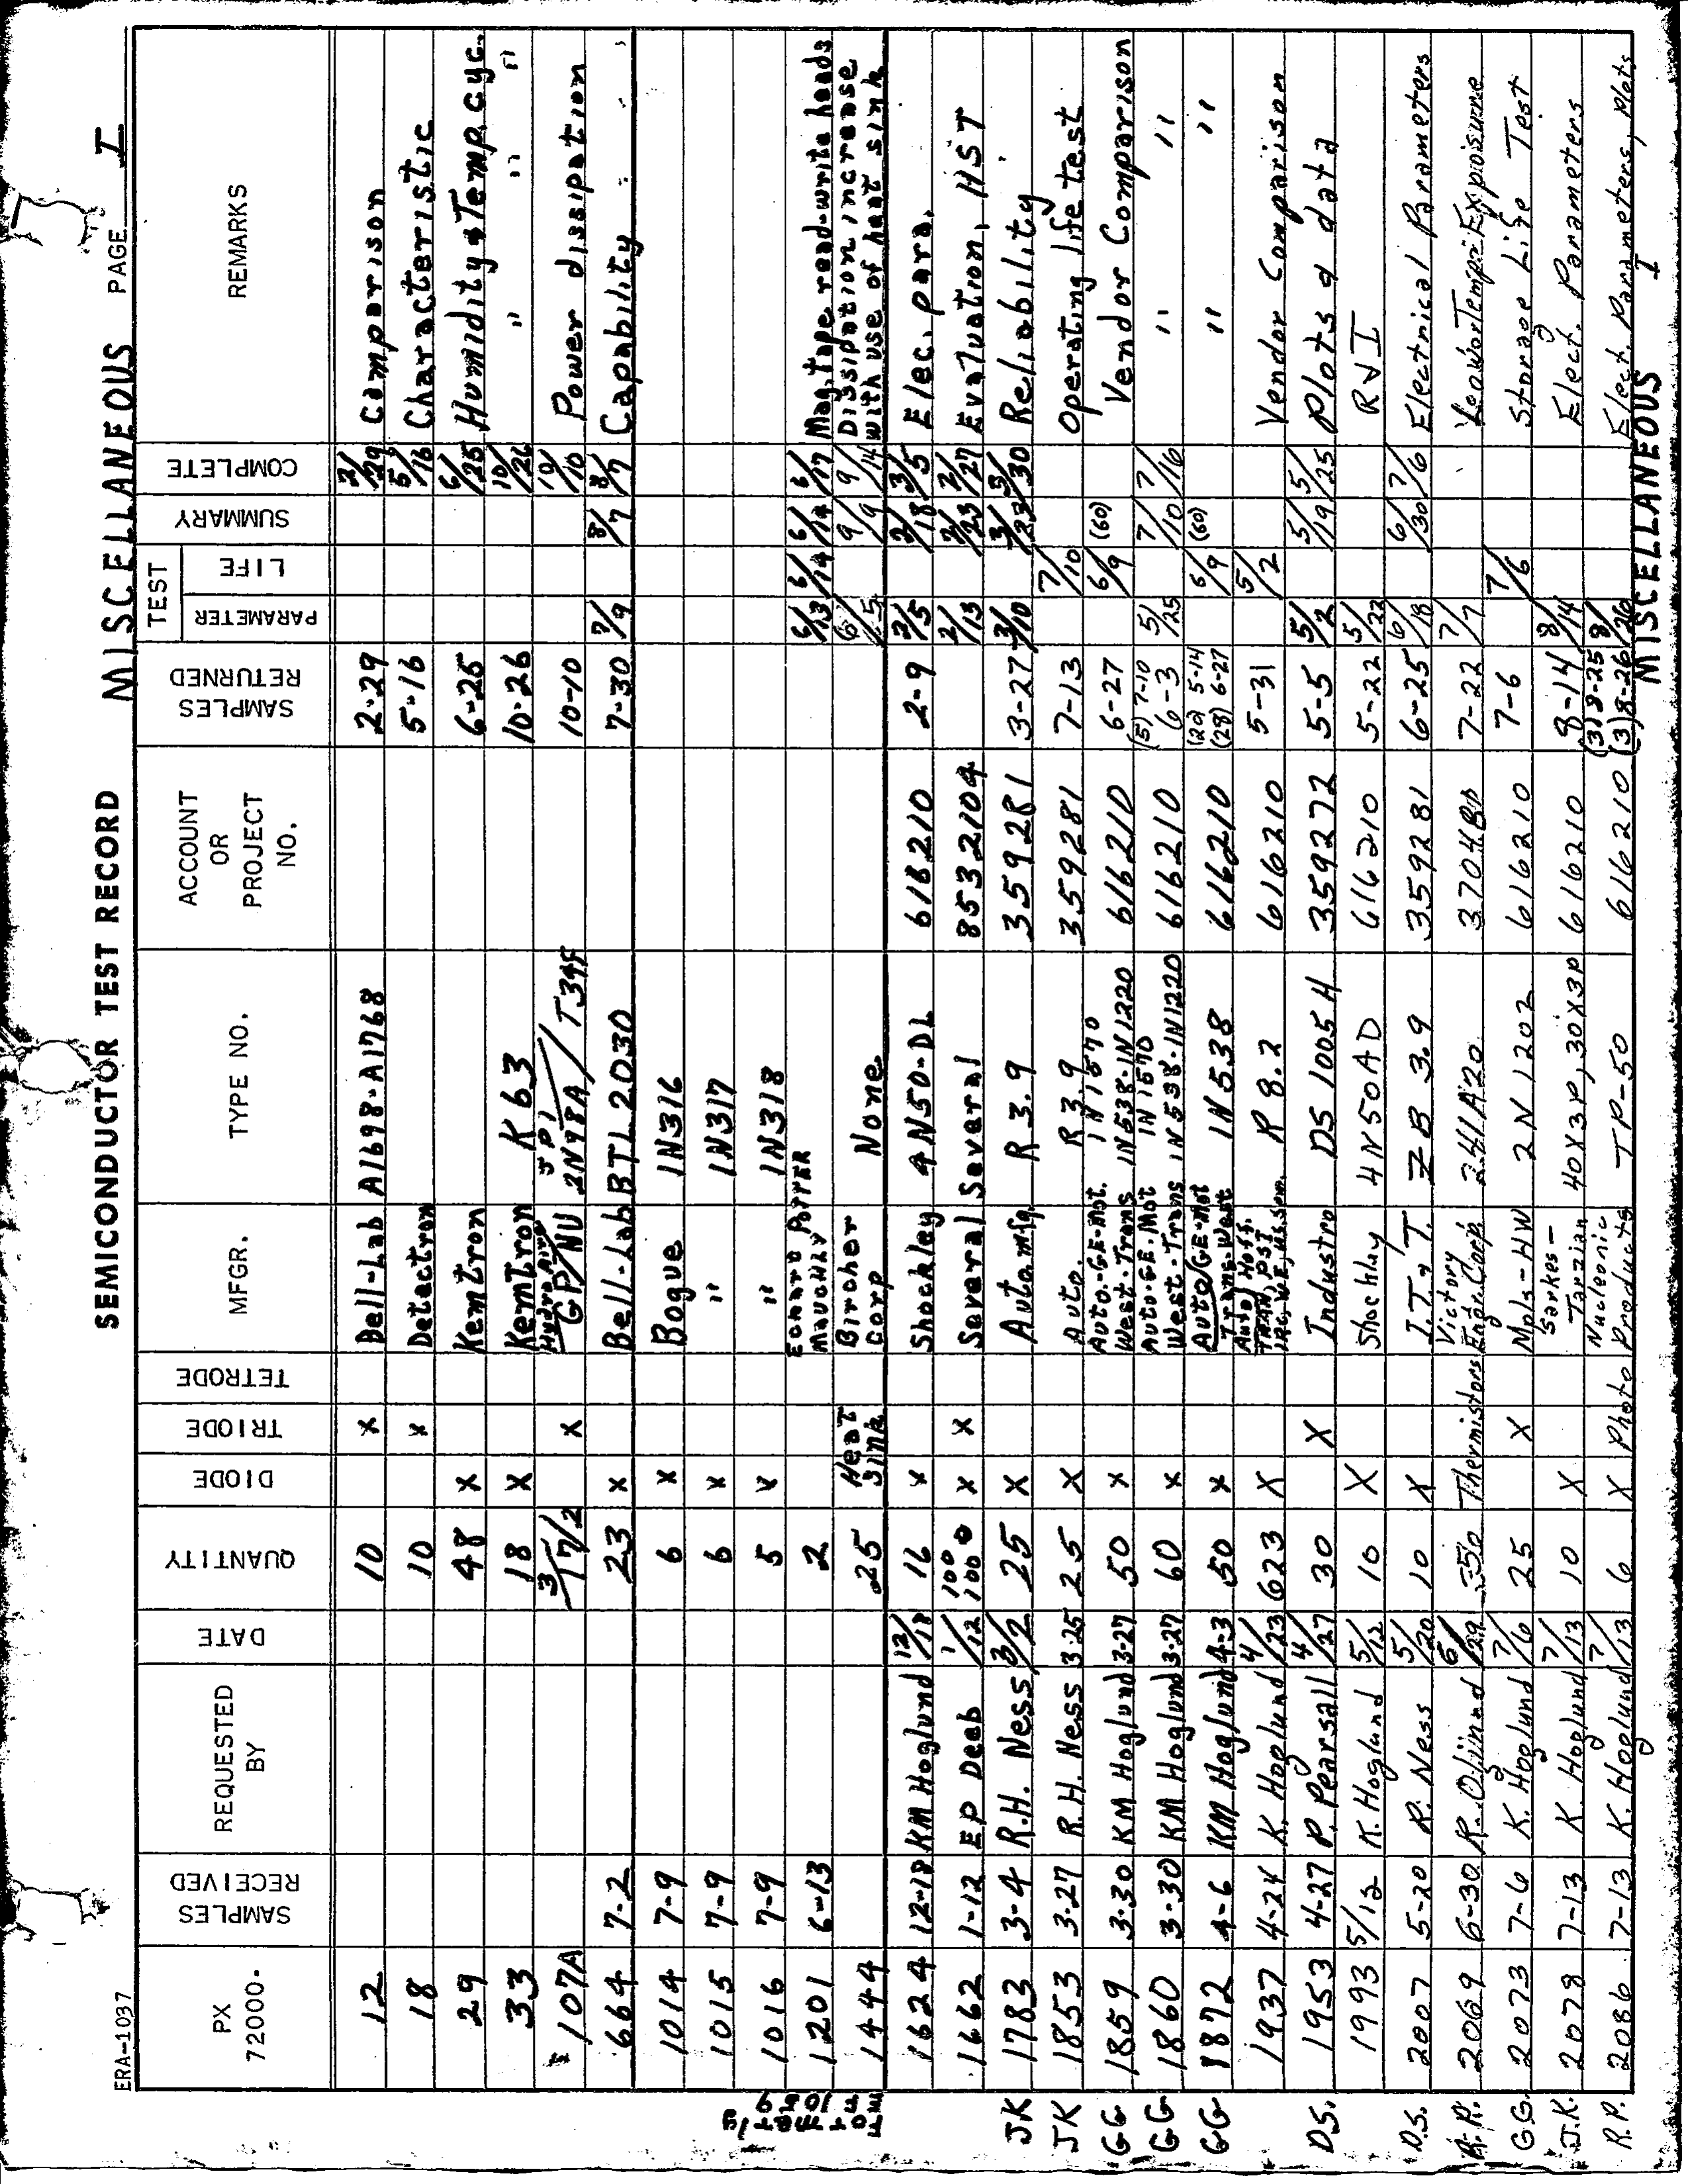 SEMICONDUCTOR TEST RECORD MISCELLANEOUS PAGE I
ERA-1037
PX 72000. SAMPLES RECEIVED REQUESTED BY DATE QUANTITY DIODE TRIODE TETRODE MFGR. TYPE NO. ACCOUNT OR PROJECT NO. SAMPLES RETURNED TEST PARAMETER LIFE SUMMARY COMPLETE REMARKS
12 10 X Bell-Lab A1698-A1768 2-29 2/29 Comparison
18 10 X Detectron 5-16 5/16 Characteristic
29 48 X Kemtron 6-25 6/25 Humidity & Temp. cyc.
33 18 X Kemtron K63 10-26 10/26 " " "
107A 3/17/2 X GP/NU JP1/2N98A/T34F 10-10 10/10 Power dissipation
664 7-2 23 X Bell-Lab BTL2030 7-30 7/9 8/7 8/7 Capability
1014 7-9 6 X Bogue 1N316
1015 7-9 6 X " 1N317
1016 7-9 5 X " 1N318
1201 6-13 2 Eckert Mauchly POTTER 6/13 6/14 6/14 6/17 Mag. tape read-write heads
1444 25 Heat Sink Bircher Corp None 9/9 9/14 Dissipation increase with use of heat sink
1624 12-18 KM Hoglund 12/18 16 X Shockley 4N50-DL 616210 2-9 2/5 2/18 3/5 Elec. para.
1662 1-12 EP Deeb 1/12 100 1000 X X Several Several 8532104 2/13 2/23 2/27 Evaluation, HST
JK 1783 3-4 R.H. Ness 3/2 25 X Auto. mfg. R3.9 359281 3-27 3/10 3/23 3/30 Reliability
JK 1853 3-27 R.H. Ness 3-25 25 X Auto. R3.9 359281 7-13 7/10 Operating life test
GG 1859 3-30 KM Hoglund 3-27 50 X Auto.-G.E.-Mot. West-Trans 1N1570 1N538-1N1220 616210 6-27 6/9 (60) Vendor Comparison
GG 1860 3-30 KM Hoglund 3-27 60 X Auto-GE-Mot West-Trans 1N1570 1N538-1N1220 616210 (5) 7-10 6-3 5/25 7/10 7/16 " "
GG 1872 4-6 KM Hoglund 4-3 50 X Auto/GE-Mot Trans-West 1N538 616210 (22) 5-14 (28) 6-27 6/9 (60) " "
1937 4-24 K. Hoglund 4/23 623 X R 8.2 616210 5-31 5/2 Vendor Comparison
D.S. 1953 4-27 P. Pearsall 4/27 30 X Industro DS 1005 H 359272 5-5 5/2 5/19 5/25 Plots & data
1993 5/12 K. Hoglund 5/12 10 X Shockly 4N50AD 616210 5-22 5/22 RJI
D.S. 2007 5-20 R. Ness 5/20 10 X I.T.&T. ZB 3.9 359281 6-25 6/18 6/30 7/6 Electrical Parameters
2069 6-30 6/29 50 Thermistors Victory Engr. Corp 241A20 7-22 7/7 Low Temp. Exposure
G.G. 2073 7-6 K. Hoglund 7/6 25 X Mpls-HW 2N1202 616210 7-6 7/6 Storage Life Test
J.K. 2078 7-13 K Hoglund 7/13 10 X Sarkes-Tarzian 40X3P, 30X3P 616210 8-14 8/14 Elect. Parameters
R.P. 2086 7-13 K. Hoglund 7/13 6 X Photo Nucleonic Products TP-50 616210 (3) 8-25 (3) 8-26 8/26 Elect. Parameters, Plots
MISCELLANEOUS I